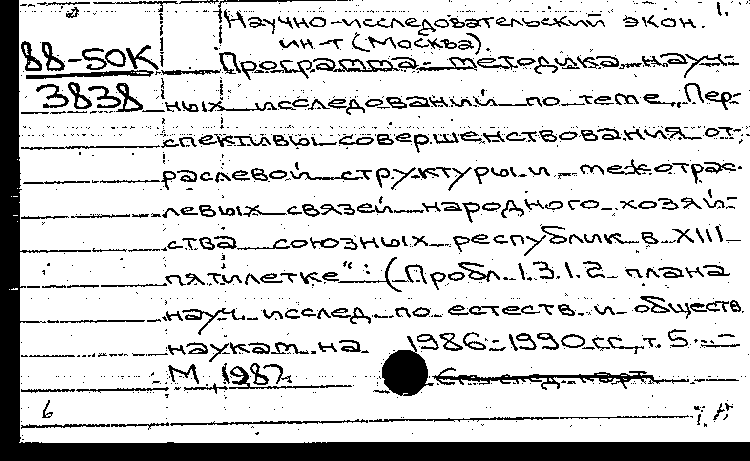 1.
Научно-исследовательский экон.
ин-т (Москва).
88-50К
Программа-методика науч-
3838
ных исследований по теме „Пер-
спективы совершенствования от-
раслевой структуры и межотрас-
левых связей народного хозяй-
ства союзных республик в XIII
пятилетке“: (Пробл. 1.3.1.2 плана
науч. исслед. по естеств. и обществ.
наукам на 1986-1990гг., т. 5. -
М., 1987.
См. след. карт.
6